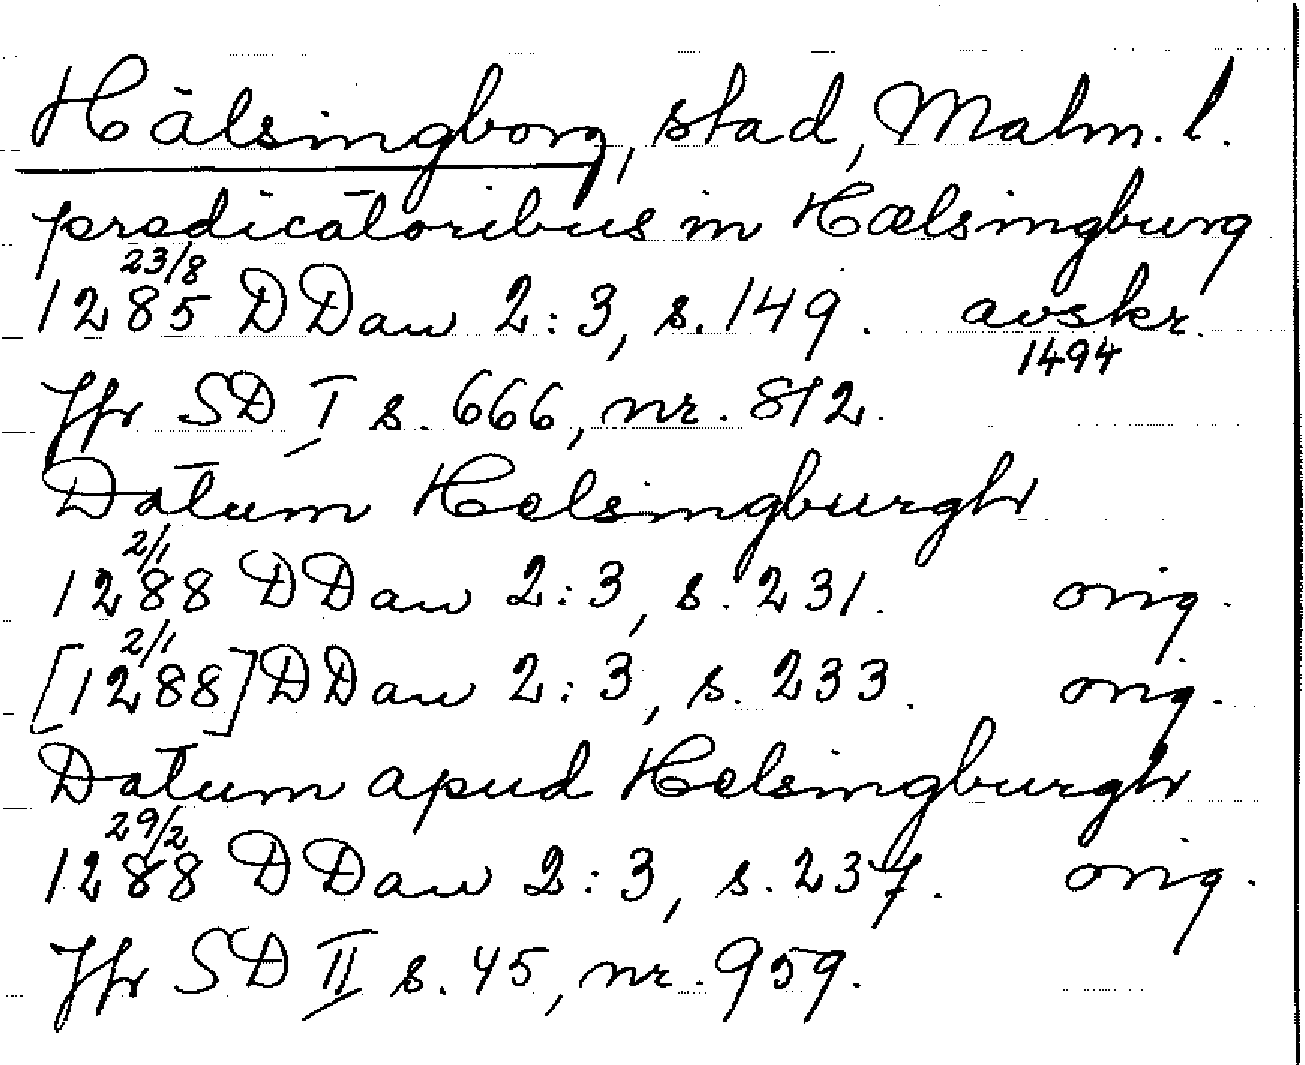 Hälsingborg, stad, Malm. l.
predicatoribus in Hælsingburg
23/8
1285 DDan 2:3, s. 149. avskr.
1494
Jfr SD I s. 666, nr. 812.
Datum Helsingburgh
2/1
1288 DDan 2:3, s. 231. orig.
2/1
[1288] DDan 2:3, s. 233. orig.
Datum apud Helsingburgh
29/2
1288 DDan 2:3, s. 237. orig.
Jfr SD II s. 45, nr. 959.